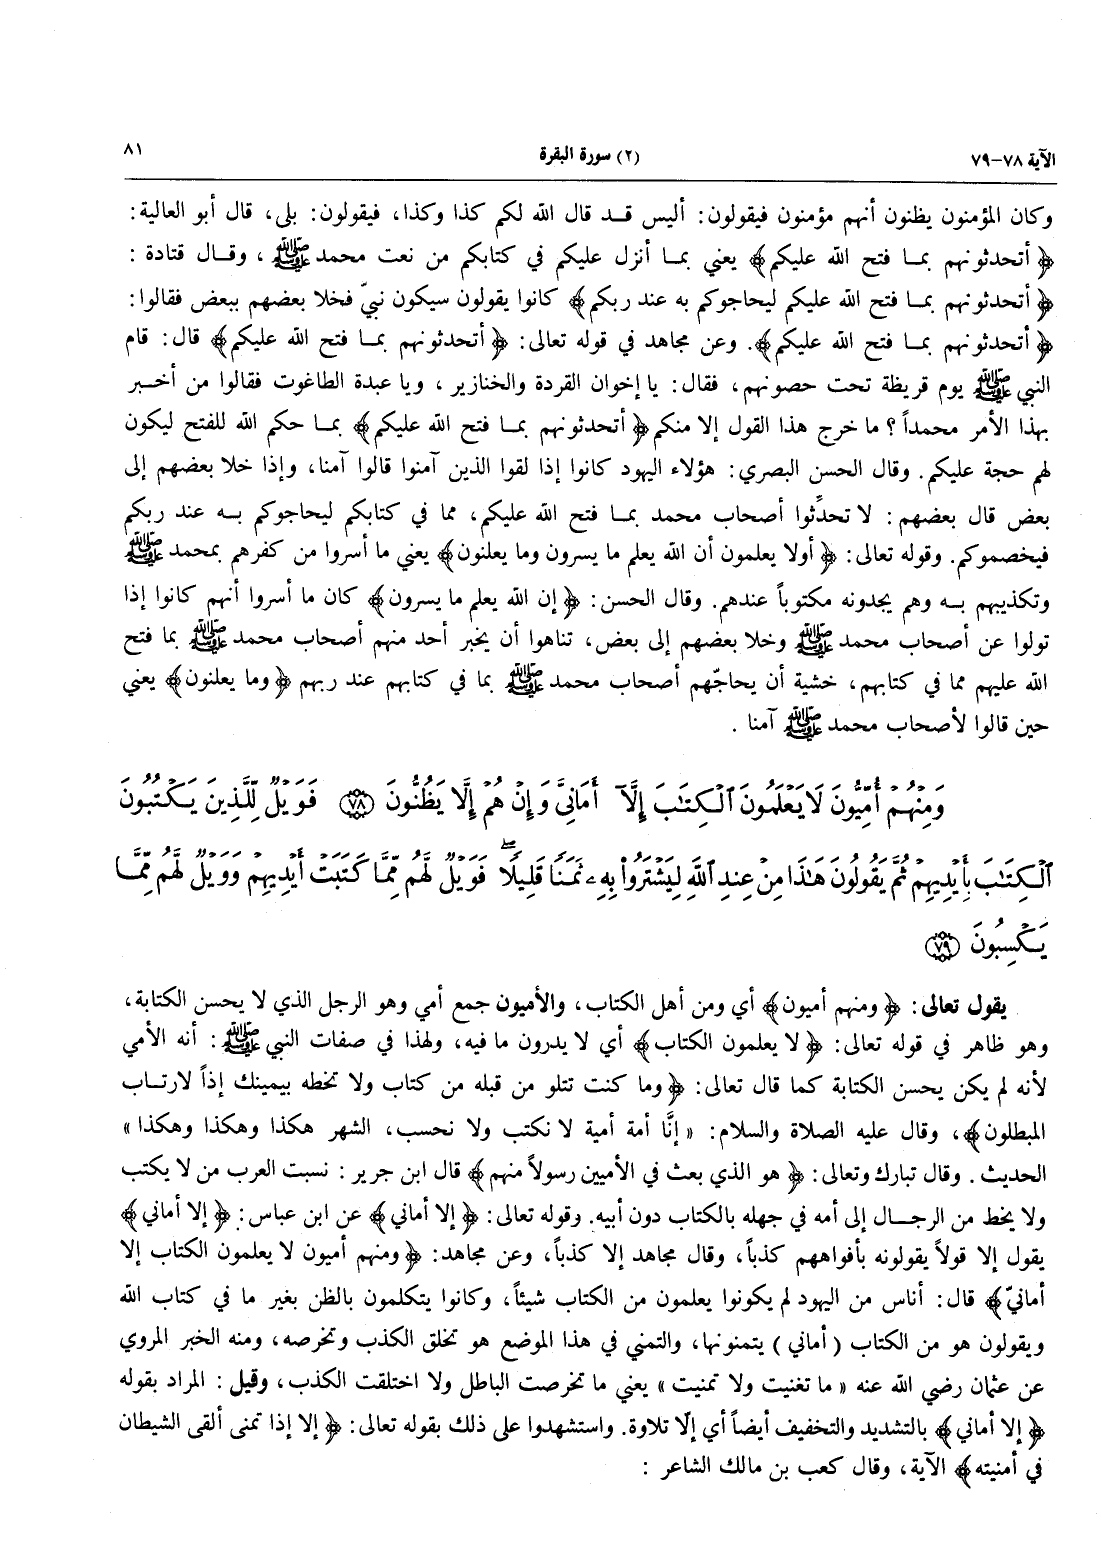 الآية ٧٨-٧٩ (٢) سورة البقرة ٨١
وكان المؤمنون يظنون أنهم مؤمنون فيقولون: أليس قد قال الله لكم كذا وكذا، فيقولون: بلى، قال أبو العالية:
﴿أتحدثونهم بما فتح الله عليكم﴾ يعني بما أنزل عليكم في كتابكم من نعت محمد ﷺ، وقال قتادة:
﴿أتحدثونهم بما فتح الله عليكم ليحاجوكم به عند ربكم﴾ كانوا يقولون سيكون نبيّ فخلا بعضهم ببعض فقالوا:
﴿أتحدثونهم بما فتح الله عليكم﴾. وعن مجاهد في قوله تعالى: ﴿أتحدثونهم بما فتح الله عليكم﴾ قال: قام
النبي ﷺ يوم قريظة تحت حصونهم، فقال: يا إخوان القردة والخنازير، ويا عبدة الطاغوت فقالوا من أخبر
بهذا الأمر محمداً؟ ما خرج هذا القول إلا منكم ﴿أتحدثونهم بما فتح الله عليكم﴾ بما حكم الله للفتح ليكون
لهم حجة عليكم. وقال الحسن البصري: هؤلاء اليهود كانوا إذا لقوا الذين آمنوا قالوا آمنا، وإذا خلا بعضهم إلى
بعض قال بعضهم: لا تحدِّثوا أصحاب محمد بما فتح الله عليكم، مما في كتابكم ليحاجوكم به عند ربكم
فيخصموكم. وقوله تعالى: ﴿أولا يعلمون أن الله يعلم ما يسرون وما يعلنون﴾ يعني ما أسروا من كفرهم بمحمد ﷺ
وتكذيبهم به وهم يجدونه مكتوباً عندهم. وقال الحسن: ﴿إن الله يعلم ما يسرون﴾ كان ما أسروا أنهم كانوا إذا
تولوا عن أصحاب محمد ﷺ وخلا بعضهم إلى بعض، تناهوا أن يخبر أحد منهم أصحاب محمد ﷺ بما فتح
الله عليهم مما في كتابهم، خشية أن يحاجّهم أصحاب محمد ﷺ بما في كتابهم عند ربهم ﴿وما يعلنون﴾ يعني
حين قالوا لأصحاب محمد ﷺ آمنا.
وَمِنْهُمْ أُمِّيُّونَ لَا يَعْلَمُونَ ٱلْكِتَٰبَ إِلَّآ أَمَانِىَّ وَإِنْ هُمْ إِلَّا يَظُنُّونَ ﴿٧٨﴾ فَوَيْلٌ لِّلَّذِينَ يَكْتُبُونَ
ٱلْكِتَٰبَ بِأَيْدِيهِمْ ثُمَّ يَقُولُونَ هَٰذَا مِنْ عِندِ ٱللَّهِ لِيَشْتَرُوا۟ بِهِۦ ثَمَنًا قَلِيلًا ۖ فَوَيْلٌ لَّهُم مِّمَّا كَتَبَتْ أَيْدِيهِمْ وَوَيْلٌ لَّهُم مِّمَّا
يَكْسِبُونَ ﴿٧٩﴾
يقول تعالى: ﴿ومنهم أميون﴾ أي ومن أهل الكتاب، والأميون جمع أمي وهو الرجل الذي لا يحسن الكتابة،
وهو ظاهر في قوله تعالى: ﴿لا يعلمون الكتاب﴾ أي لا يدرون ما فيه، ولهذا في صفات النبي ﷺ: أنه الأمي
لأنه لم يكن يحسن الكتابة كما قال تعالى: ﴿وما كنت تتلو من قبله من كتاب ولا تخطه بيمينك إذاً لارتاب
المبطلون﴾، وقال عليه الصلاة والسلام: «إنَّا أمة أمية لا نكتب ولا نحسب، الشهر هكذا وهكذا وهكذا»
الحديث. وقال تبارك وتعالى: ﴿هو الذي بعث في الأميين رسولاً منهم﴾ قال ابن جرير: نسبت العرب من لا يكتب
ولا يخط من الرجال إلى أمه في جهله بالكتاب دون أبيه. وقوله تعالى: ﴿إلا أماني﴾ عن ابن عباس: ﴿إلا أماني﴾
يقول إلا قولاً يقولونه بأفواههم كذباً، وقال مجاهد إلا كذباً، وعن مجاهد: ﴿ومنهم أميون لا يعلمون الكتاب إلا
أمانيّ﴾ قال: أناس من اليهود لم يكونوا يعلمون من الكتاب شيئاً، وكانوا يتكلمون بالظن بغير ما في كتاب الله
ويقولون هو من الكتاب (أماني) يتمنونها، والتمني في هذا الموضع هو تخلق الكذب وتخرصه، ومنه الخبر المروي
عن عثمان رضي الله عنه «ما تغنيت ولا تمنيت» يعني ما تخرصت الباطل ولا اختلقت الكذب، وقيل: المراد بقوله
﴿إلا أماني﴾ بالتشديد والتخفيف أيضاً أي إلّا تلاوة. واستشهدوا على ذلك بقوله تعالى: ﴿إلا إذا تمنى ألقى الشيطان
في أمنيته﴾ الآية، وقال كعب بن مالك الشاعر: